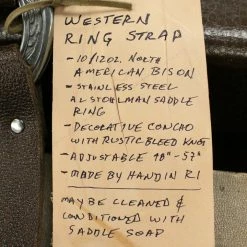 WESTERN
RING STRAP
- 10/12 OZ. NORTH
AMERICAN BISON
- STAINLESS STEEL
AL STOHLMAN SADDLE
RING
- DECORATIVE CONCHO
WITH RUSTIC BLEED KNOT
- ADJUSTABLE 48" - 57"
- MADE BY HAND IN RI
MAY BE CLEANED &
CONDITIONED WITH
SADDLE SOAP